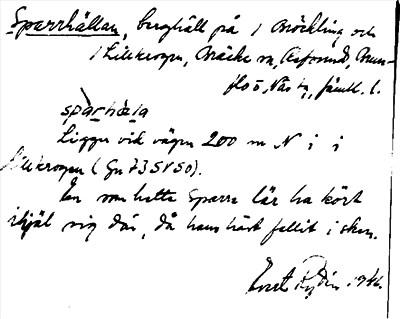 Sparrhällan, berghäll på 1 Möckling och
1 Lillkrogen, Bräcke sn, Revsund, Brun-
flo, Västra, Jämtl. l.
sparhæla
Ligger vid vägen 200 m N i i
Lillkrogen (Gn 73SV50).
En som hette Sparre lär ha kört
ihjäl sig där, då hans häst fallit i sken.
Ernst 1946.